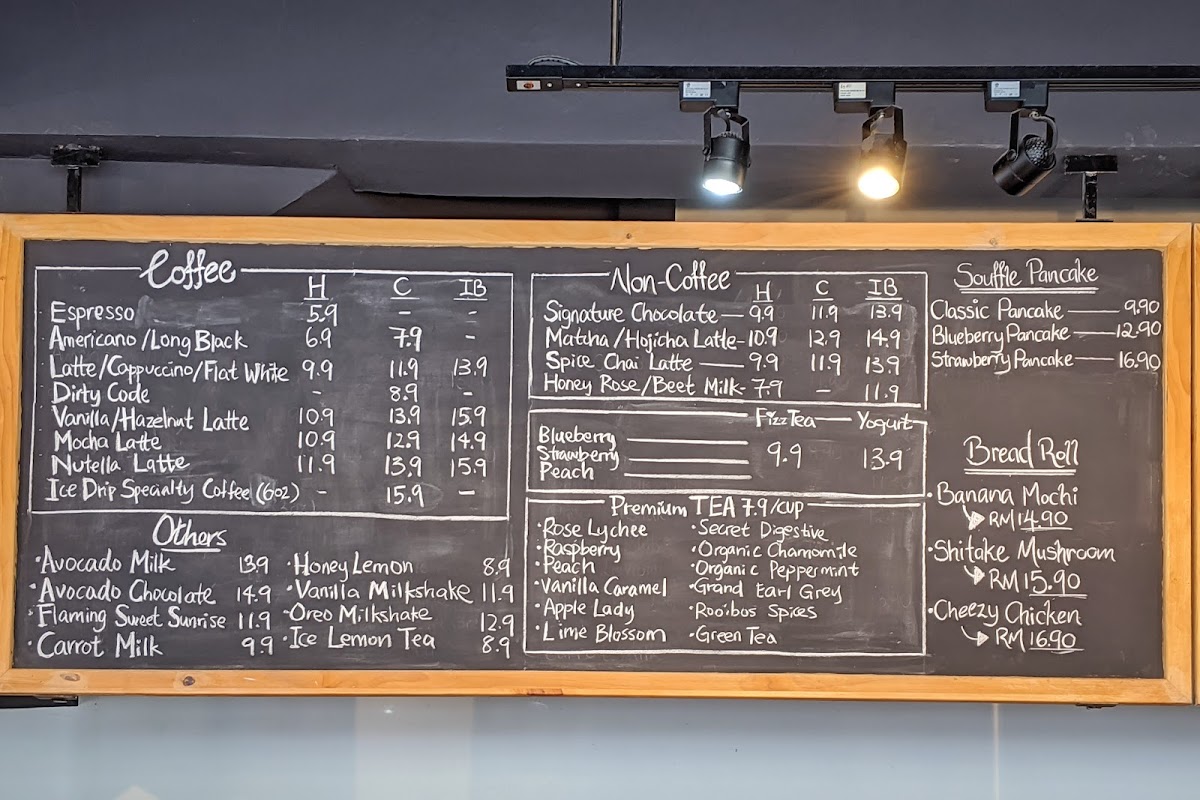 Coffee
H C IB
Espresso 5.9 - -
Americano/Long Black 6.9 7.9 -
Latte/Cappuccino/Flat White 9.9 11.9 13.9
Dirty Code - 8.9 -
Vanilla/Hazelnut Latte 10.9 13.9 15.9
Mocha Latte 10.9 12.9 14.9
Nutella Latte 11.9 13.9 15.9
Ice Drip Specialty Coffee (6oz) - 15.9 -
Others
·Avocado Milk 13.9
·Avocado Chocolate 14.9
·Flaming Sweet Sunrise 11.9
·Carrot Milk 9.9
·Honey Lemon 8.9
·Vanilla Milkshake 11.9
·Oreo Milkshake 12.9
·Ice Lemon Tea 8.9
Non-Coffee
H C IB
Signature Chocolate — 9.9 11.9 13.9
Matcha/Hojicha Latte - 10.9 12.9 14.9
Spice Chai Latte — 9.9 11.9 13.9
Honey Rose/Beet Milk - 7.9 - 11.9
Fizz Tea Yogurt
Blueberry
Strawberry 9.9 13.9
Peach
Premium TEA 7.9/cup
·Rose Lychee
·Raspberry
·Peach
·Vanilla Caramel
·Apple Lady
·Lime Blossom
·Secret Digestive
·Organic Chamomile
·Organic Peppermint
·Grand Earl Grey
·Rooibos Spices
·Green Tea
Souffle Pancake
Classic Pancake — 9.90
Blueberry Pancake — 12.90
Strawberry Pancake — 16.90
Bread Roll
·Banana Mochi
RM 14.90
·Shitake Mushroom
RM 15.90
·Cheezy Chicken
RM 16.90